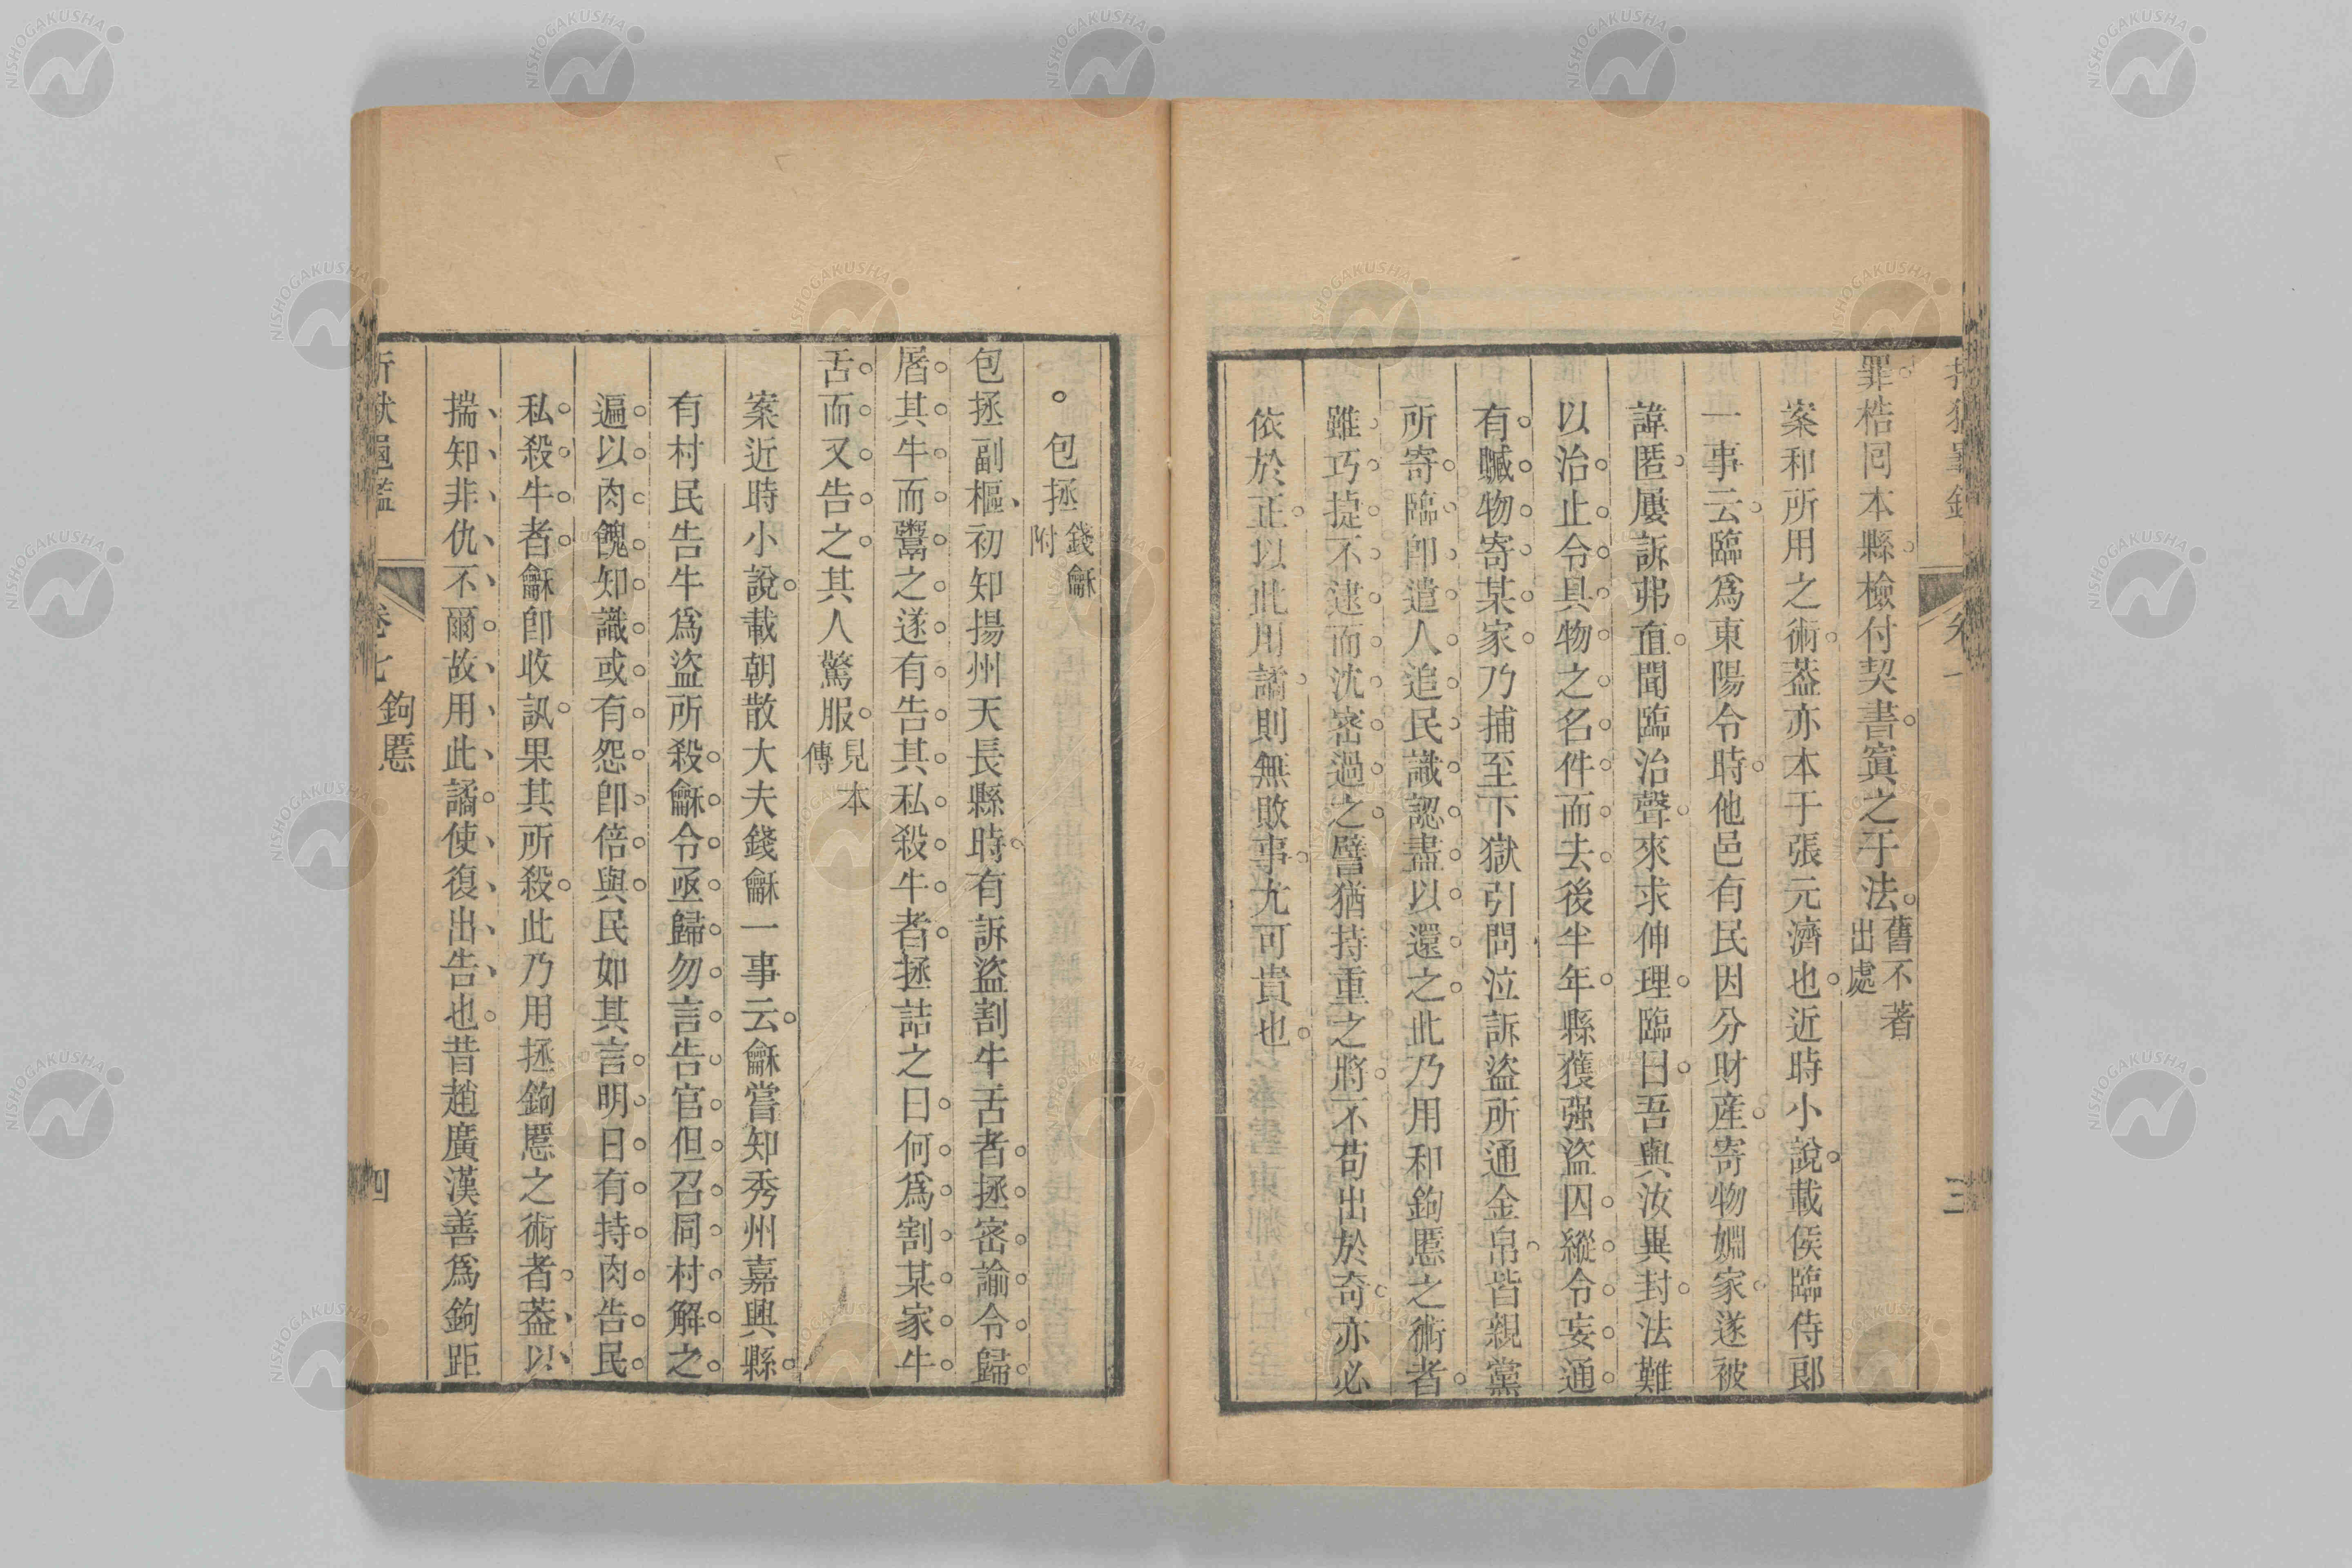 罪梏囘本縣檢付契書寘之于法舊不著出處
案和所用之術葢亦本于張元濟也近時小說載侯臨侍郎
一事云臨爲東陽令時他邑有民因分財産寄物婣家遂被
諱匿屢訴弗直聞臨治聲來求伸理臨曰吾與汝異封法難
以治止令具物之名件而去後半年縣獲强盜囚縱令妄通
有贓物寄某家乃捕至下獄引問泣訴盜所通金帛皆親黨
所寄臨卽遣人追民識認盡以還之此乃用和鉤慝之術者
雖巧捷不逮而沈密過之譬猶持重之將不苟出於奇亦必
依於正以此用譎則無敗事尤可貴也
三
包拯錢龢附
包拯副樞初知揚州天長縣時有訴盜割牛舌者拯密諭令歸
屠其牛而鬻之遂有告其私殺牛者拯詰之曰何爲割某家牛
舌而又告之其人驚服見本傳
案近時小說載朝散大夫錢龢一事云龢嘗知秀州嘉興縣
有村民告牛爲盜所殺龢令亟歸勿言告官但召同村解之
遍以肉餽知識或有怨卽倍與民如其言明日有持肉告民
私殺牛者龢卽收訊果其所殺此乃用拯鉤慝之術者葢以
揣知非仇不爾故用此譎使復出告也昔趙廣漢善爲鉤距
卷七 鉤慝
四
NISHOGAKUSHA